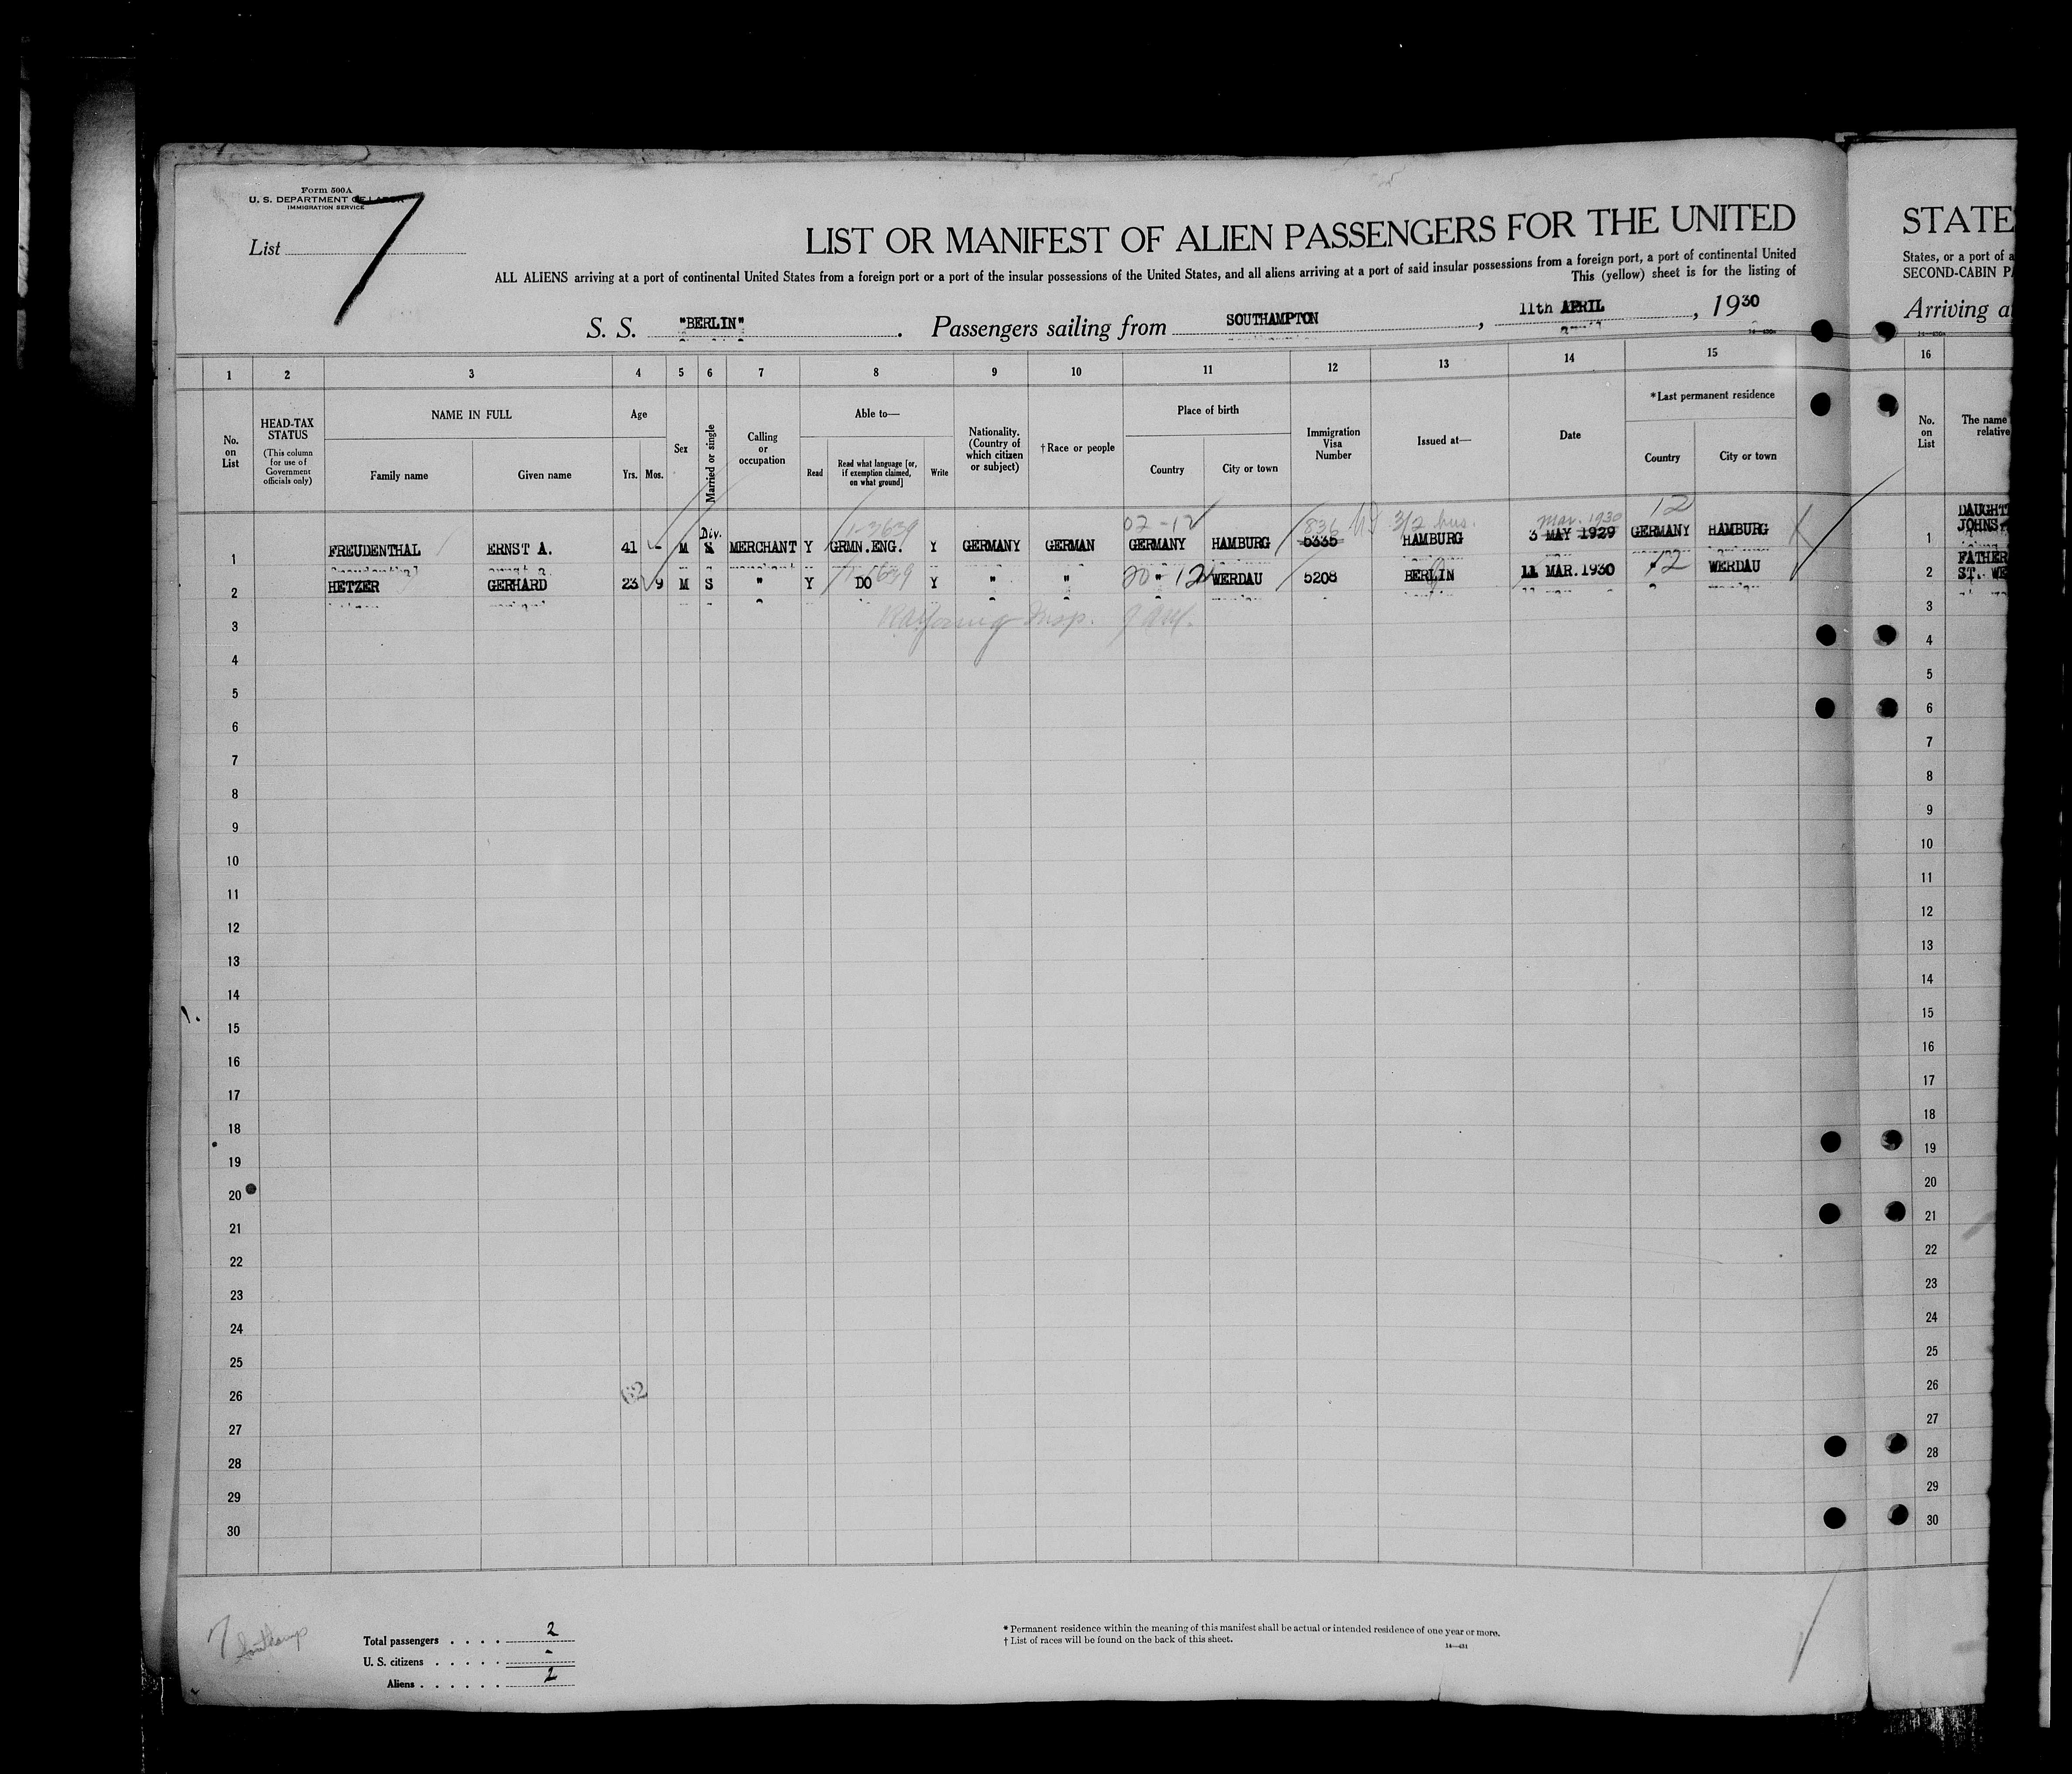 Form 500A
U. S. DEPARTMENT OF LABOR
IMMIGRATION SERVICE
List 7
LIST OR MANIFEST OF ALIEN PASSENGERS FOR THE UNITED
ALL ALIENS arriving at a port of continental United States from a foreign port or a port of the insular possessions of the United States, and all aliens arriving at a port of said insular possessions from a foreign port, a port of continental United
This (yellow) sheet is for the listing of
S. S. "BERLIN". Passengers sailing from SOUTHAMPTON, 11th APRIL, 1930
STATE
States, or a port of a
SECOND-CABIN PA
Arriving a
1 2 3 4 5 6 7 8 9 10 11 12 13 14 15 16
No. on List
HEAD-TAX STATUS (This column for use of Government officials only)
NAME IN FULL
Family name
Given name
Age
Yrs.
Mos.
Sex
Married or single
Calling or occupation
Able to—
Read
Read what language [or, if exemption claimed, on what ground]
Write
Nationality. (Country of which citizen or subject)
† Race or people
Place of birth
Country
City or town
Immigration Visa Number
Issued at—
Date
*Last permanent residence
Country
City or town
No. on List
The name
relative
02-12 836 3/2 bus. Mar. 1930 12
Div.
1 FREUDENTHAL ERNST A. 41 - M S MERCHANT Y GRMN.ENG. Y GERMANY GERMAN GERMANY HAMBURG 5335 HAMBURG 3 MAY 1929 GERMANY HAMBURG 1 DAUGHT
JOHNS
2 HETZER GERHARD 23 9 M S " Y DO Y " " 20 " 12 WERDAU 5208 BERLIN 11 MAR.1930 12 WERDAU 2 FATHER
ST. WE
3 3
4 4
5 5
6 6
7 7
8 8
9 9
10 10
11 11
12 12
13 13
14 14
15 15
16 16
17 17
18 18
19 19
20 20
21 21
22 22
23 23
24 24
25 25
26 26
27 27
28 28
29 29
30 30
62
7 Southamp
Total passengers . . . . 2
U. S. citizens . . . . . -
Aliens . . . . . . 2
* Permanent residence within the meaning of this manifest shall be actual or intended residence of one year or more.
† List of races will be found on the back of this sheet.
14—431